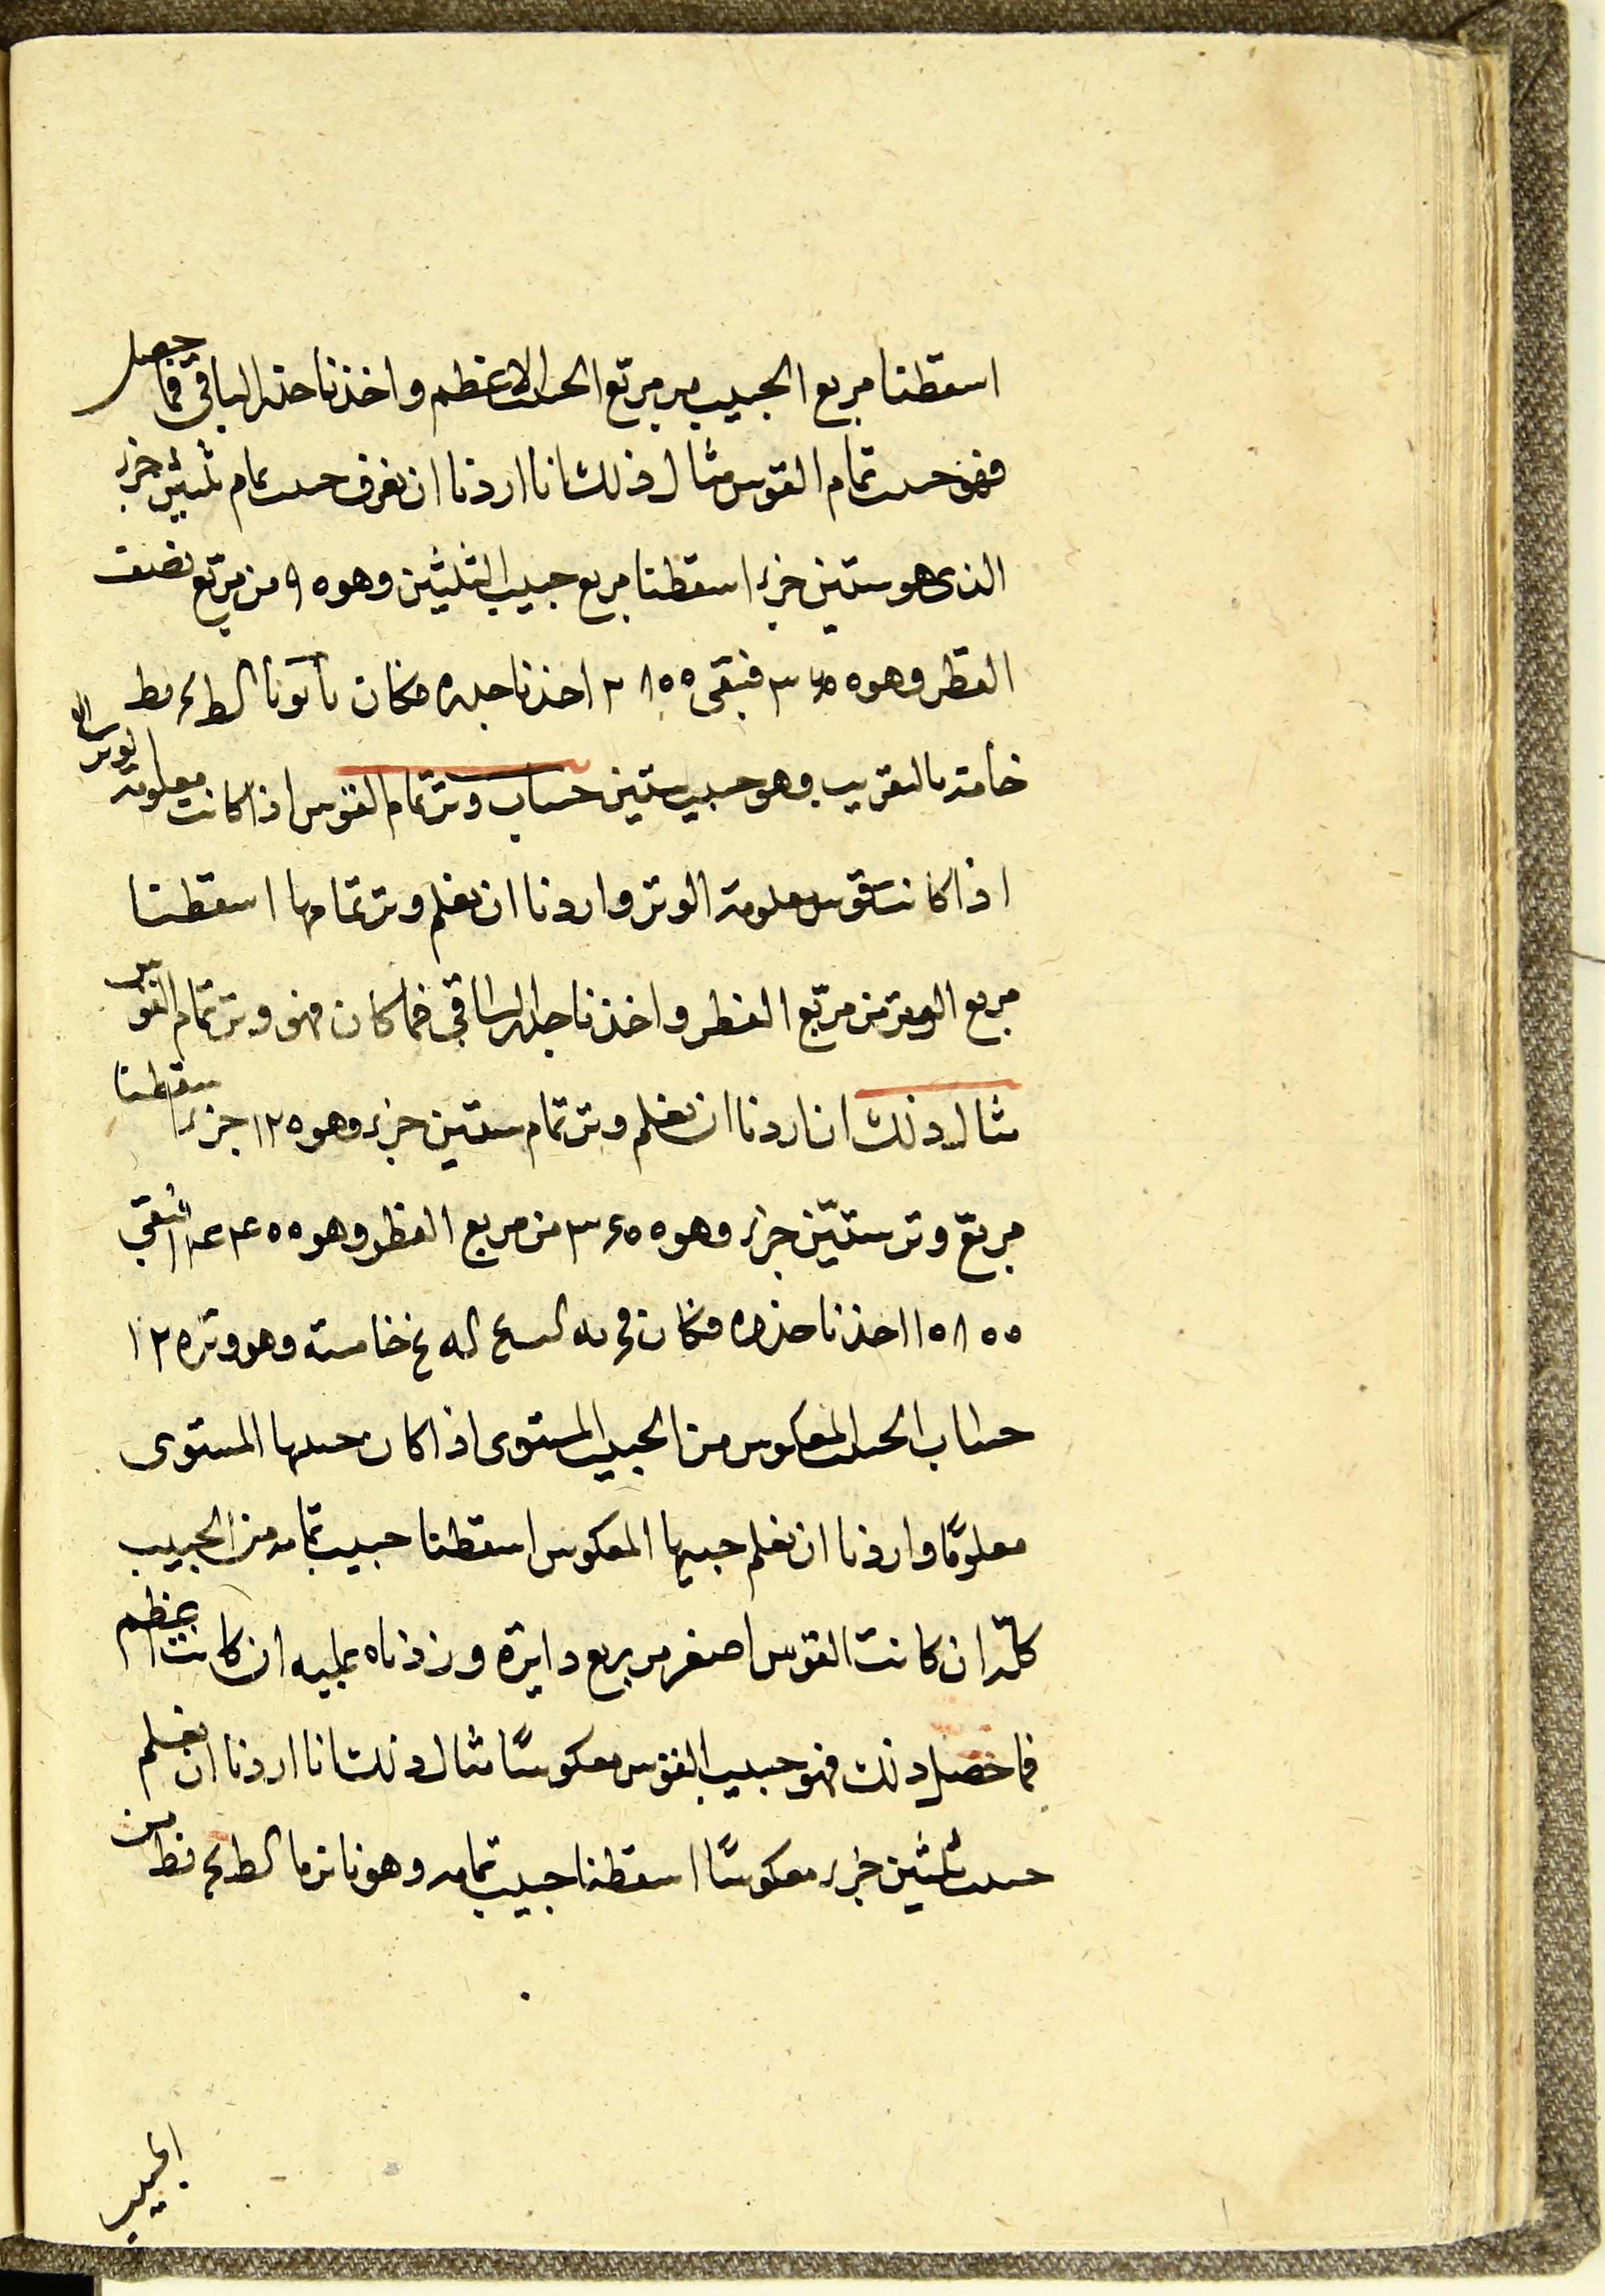 اسقطنا مربع الجيب من مربّع الجيب الاعظم واخذنا جذر الباقى فما حصل
فهو جيب تمام القوس مثال ذلك انا اردنا ان نعرف جيب تمام ثلثين جزء
الذى هو ستين جزء اسقطنا مربع جيب الثلثين وهو ٩٠٠ من مربّع نصف
القطر وهو ٣٦٠٠ فبقى ٢٧٠٠ اخذنا جذره فكان
خامسة بالتقريب وهو جيب ستين حساب وتر تمام القوس اذا كانت معلومة الوتر
اذا كانت قوس معلومة الوتر واردنا ان نعلم وتر تمامها اسقطنا
مربع الوتر من مربّع القطر واخذنا جذر الباقى فما كان فهو وتر تمام القوس
مثال ذلك انا اردنا ان نعلم وتر تمام ستين جزء وهو ١٢٠ جزء اسقطنا
مربّع وتر ستّين جزء وهو ٣٦٠٠ من مربع القطر وهو ١٤٤٠٠ فبقى
١٠٨٠٠ اخذنا جذره فكان خامسة وهو وتر ١٢٠
حساب الجيب المعكوس من الجيب المستوى اذا كان جيبها المستوى
معلومًا واردنا ان نعلم جيبها المعكوس اسقطنا جيب تمامه من الجيب
كلّه ان كانت القوس اصغر من ربع دايرة وزدناه عليه ان كانت اعظم
فما حصل ذلك فهو جيب القوس معكوسًا مثال ذلك انا اردنا ان نعلم
جيب ثلثين جزء معكوسًا اسقطنا جيب تمامه وهو من
الجيب